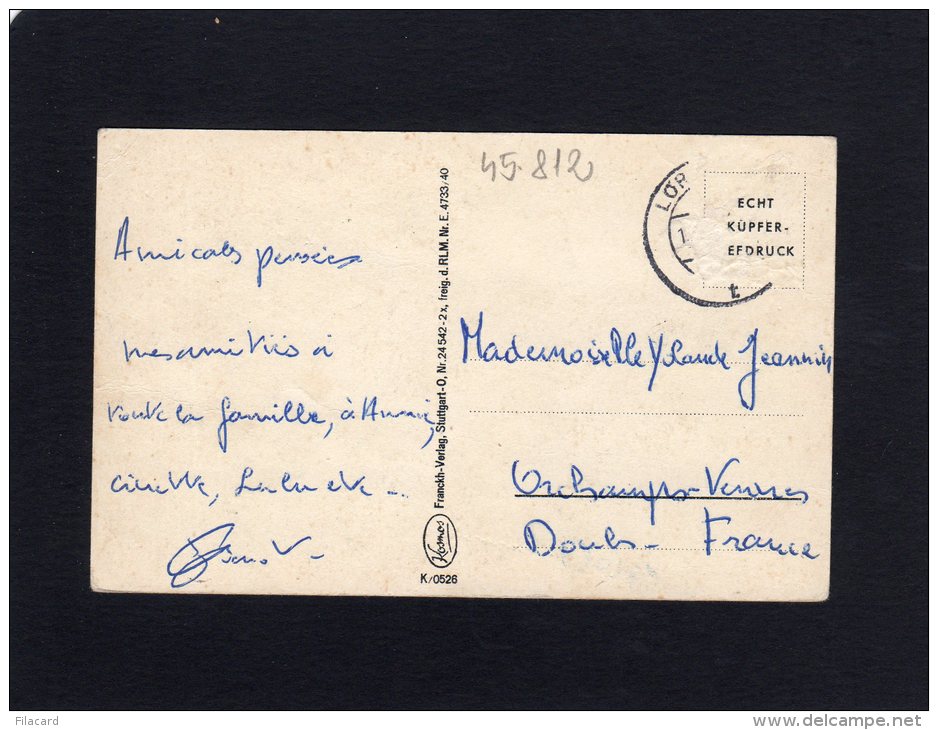 45.812
LÖR
1
t
ECHT
KÜPFER-
EFDRUCK
Amicales pensées
mes amitiés à
toute la famille, à
Mademoiselle Yolande Jeannin
Orchamps-Vennes
Doubs - France
Franckh-Verlag, Stuttgart-O, Nr. 24 542-2x, freig. d. RLM. Nr. E. 4733/40
Kosmos
K/0526
Filacard
delcampe.net